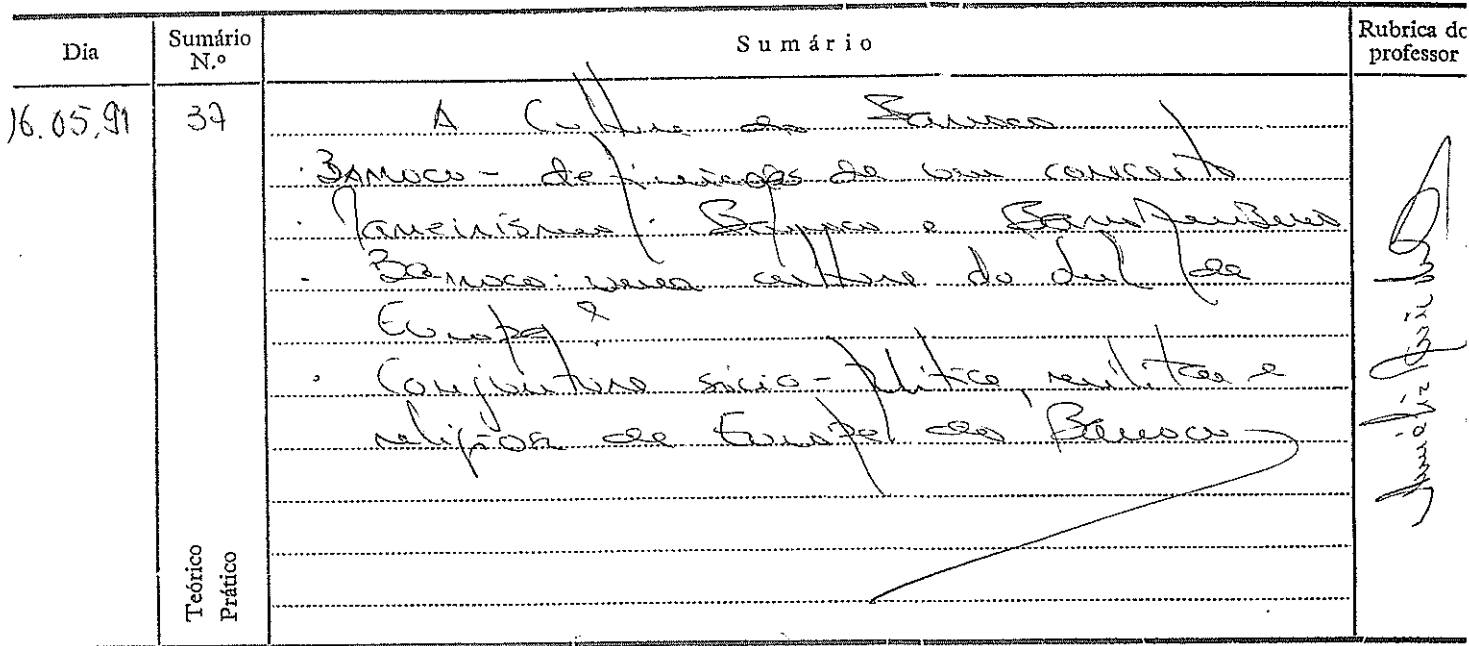 Dia
Sumário N.º
Sumário
Rubrica do professor
16.05.91
37
A Cultura do Barroco
· Barroco - definições de um conceito
· Maneirismo, Barroco e
· Barroco: uma cultura do Sul da
Europa?
· Conjuntura sócio-política, militar e
religiosa da Europa do Barroco
Teórico
Prático